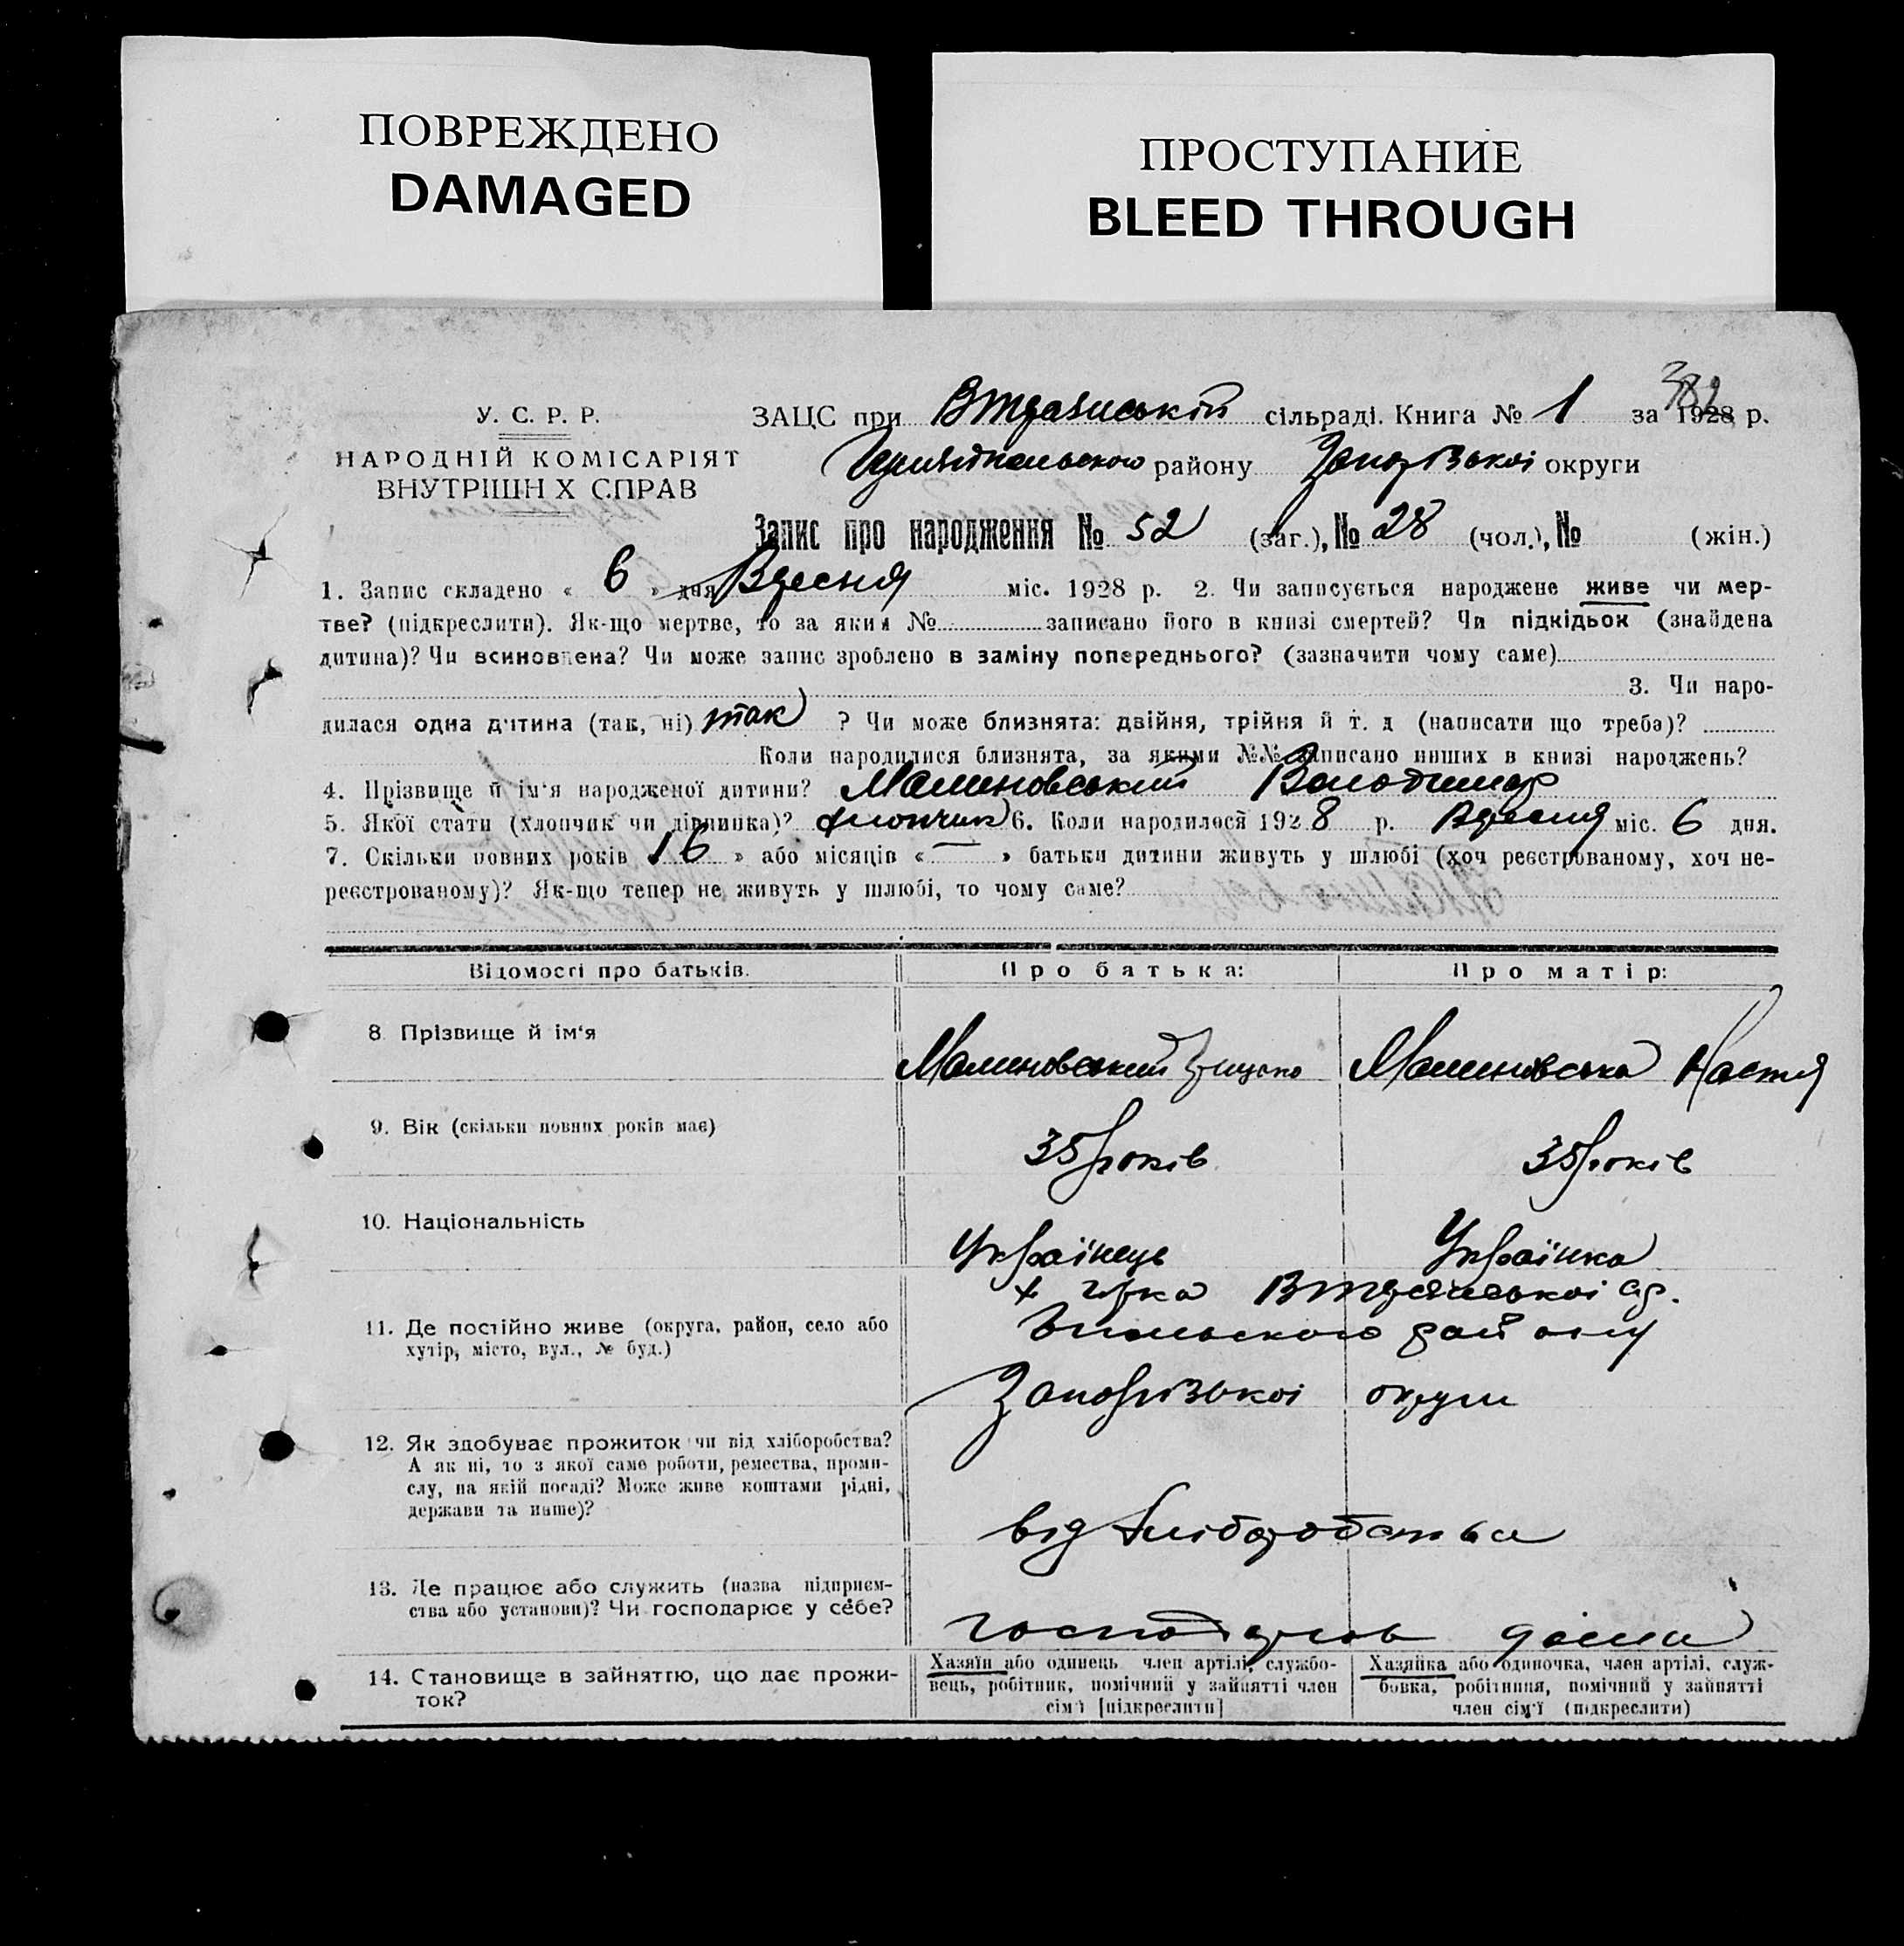 ПОВРЕЖДЕНО
DAMAGED
ПРОСТУПАНИЕ
BLEED THROUGH
У. С. Р. Р.
НАРОДНІЙ КОМІСАРІЯТ
ВНУТРІШН Х СПРАВ
382
ЗАЦС при сільраді. Книга № 1 за 1928 р.
району округи
Запис про народження № 52 (заг.), № 28 (чол.), № (жін.)
1. Запис складено « 6 » дня Вресня міс. 1928 р. 2. Чи записується народжене живе чи мер-
тве? (підкреслити). Як-що мертве, то за яким № записано його в книзі смертей? Чи підкідьок (знайдена
дитина)? Чи всиновлена? Чи може запис зроблено в заміну попереднього? (зазначити чому саме)
3. Чи наро-
дилася одна дитина (так, ні) так ? Чи може близнята: двійня, трійня й т. д (написати що треба)?
Коли народилися близнята, за якими №№ записано инших в книзі народжень?
4. Прізвище й ім'я народженої дитини? Малиновський Володимир
5. Якої стати (хлопчик чи дівчинка)? хлопчик 6. Коли народилося 1928 р. Вресня міс. 6 дня.
7. Скільки повних років 16 » або місяців « — » батьки дитини живуть у шлюбі (хоч реєстрованому, хоч не-
реєстрованому)? Як-що тепер не живуть у шлюбі, то чому саме?
Відомості про батьків.
Про батька:
Про матір:
8 Прізвище й ім'я
Малиновський Грицько
Малиновська Настя
9. Вік (скільки повних років має)
35 років
35 років
10. Національність
Українець
Українка
11. Де постійно живе (округа, район, село або
хутір, місто, вул., № буд.)
району
Запорізькоі округи
12. Як здобуває прожиток чи від хліборобства?
А як ні, то з якої саме роботи, ремества, проми-
слу, на якій посаді? Може живе коштами рідні,
держави та инше)?
від хліборобства
13. Де працює або служить (назва підприєм-
ства або установи)? Чи господарює у себе?
дома
14. Становище в зайняттю, що дає прожи-
ток?
Хазяїн або одинець член артілі, службо-
вець, робітник, помічний у зайнятті член
сім'ї [підкреслити]
Хазяйка або одиночка, член артілі, служ-
бовка, робітниця, помічний у зайнятті
член сім'ї (підкреслити)